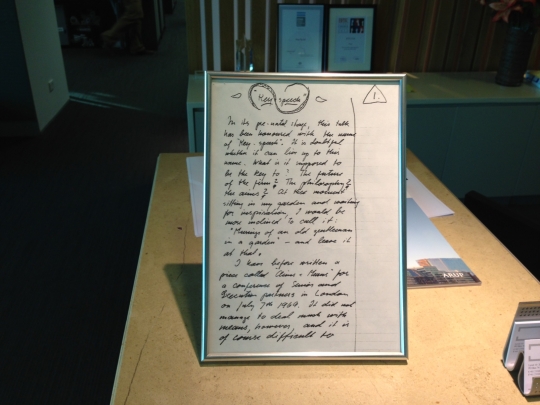 "Key speech"
1.
In its pre-natal stage, this talk
has been honoured with the name
of "Key-speech". It is doubtful
whether it can live up to this
name. What is it supposed to
be the key to? The future
of the firm? The philosophy?
the aims? At this moment
sitting in my garden and waiting
for inspiration, I would be
more inclined to call it:
"Musings of an old gentleman
in a garden" - and leave it
at that.
I have before written a
piece called "Aims & Means" for
a conference of Senior and
Executive partners in London
on July 7th 1969. It did not
manage to deal much with
means, however, and it is
of course difficult to
ARUP